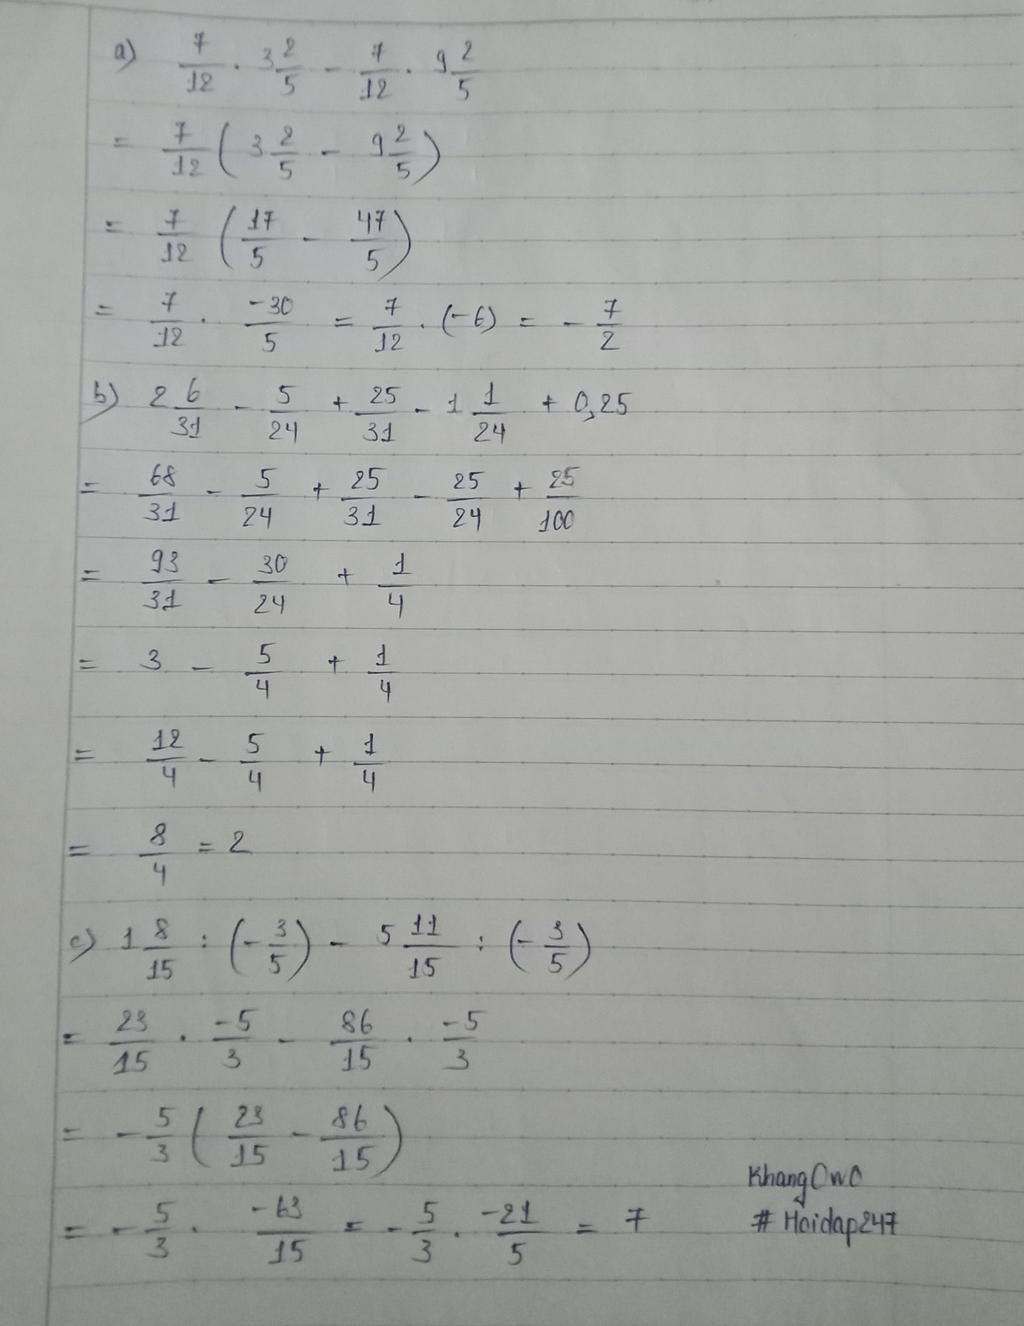 a) 7/12 . 3 2/5 - 7/12 . 9 2/5
= 7/12 (3 2/5 - 9 2/5)
= 7/12 (17/5 - 47/5)
= 7/12 . -30/5 = 7/12 . (-6) = - 7/2
b) 2 6/31 - 5/24 + 25/31 - 1 1/24 + 0,25
= 68/31 - 5/24 + 25/31 - 25/24 + 25/100
= 93/31 - 30/24 + 1/4
= 3 - 5/4 + 1/4
= 12/4 - 5/4 + 1/4
= 8/4 = 2
c) 1 8/15 : (- 3/5) - 5 11/15 : (- 3/5)
= 23/15 . -5/3 - 86/15 . -5/3
= - 5/3 (23/15 - 86/15)
= - 5/3 . -63/15 = - 5/3 . -21/5 = 7
KhangOwO
# Hoidap247